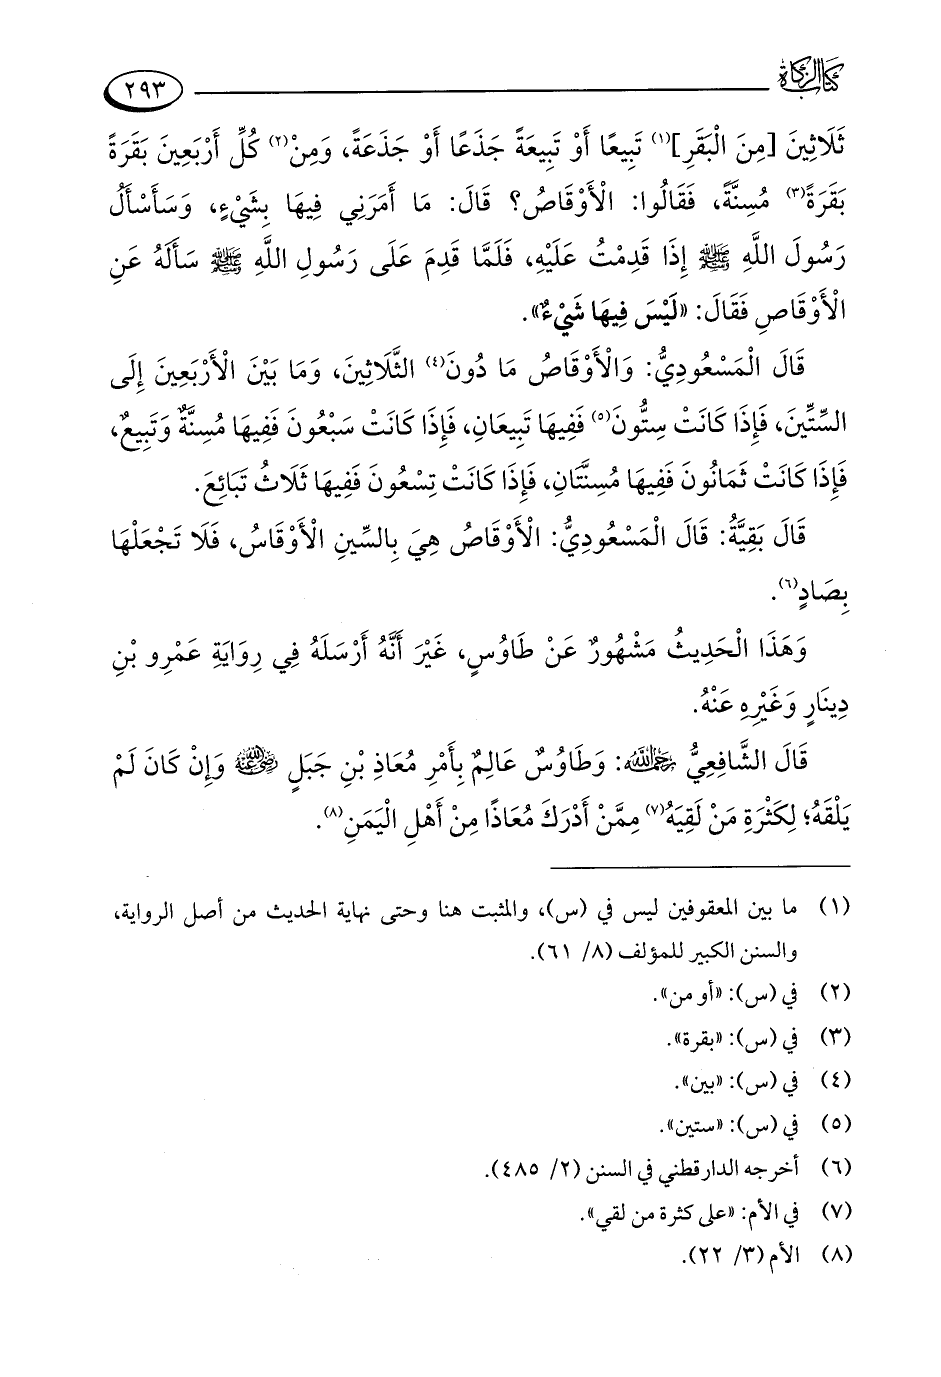 كتاب الزكاة
٢٩٣
ثَلَاثِينَ [مِنَ الْبَقَرِ](١) تَبِيعًا أَوْ تَبِيعَةً جَذَعًا أَوْ جَذَعَةً، وَمِنْ(٢) كُلِّ أَرْبَعِينَ بَقَرَةً
بَقَرَةً(٣) مُسِنَّةً، فَقَالُوا: الْأَوْقَاصُ؟ قَالَ: مَا أَمَرَنِي فِيهَا بِشَيْءٍ، وَسَأَسْأَلُ
رَسُولَ اللَّهِ ﷺ إِذَا قَدِمْتُ عَلَيْهِ، فَلَمَّا قَدِمَ عَلَى رَسُولِ اللَّهِ ﷺ سَأَلَهُ عَنِ
الْأَوْقَاصِ فَقَالَ: «لَيْسَ فِيهَا شَيْءٌ».
قَالَ الْمَسْعُودِيُّ: وَالْأَوْقَاصُ مَا دُونَ(٤) الثَّلَاثِينَ، وَمَا بَيْنَ الْأَرْبَعِينَ إِلَى
السِّتِّينَ، فَإِذَا كَانَتْ سِتُّونَ(٥) فَفِيهَا تَبِيعَانِ، فَإِذَا كَانَتْ سَبْعُونَ فَفِيهَا مُسِنَّةٌ وَتَبِيعٌ،
فَإِذَا كَانَتْ ثَمَانُونَ فَفِيهَا مُسِنَّتَانِ، فَإِذَا كَانَتْ تِسْعُونَ فَفِيهَا ثَلَاثُ تَبَائِعَ.
قَالَ بَقِيَّةُ: قَالَ الْمَسْعُودِيُّ: الْأَوْقَاصُ هِيَ بِالسِّينِ الْأَوْقَاسُ، فَلَا تَجْعَلْهَا
بِصَادٍ(٦).
وَهَذَا الْحَدِيثُ مَشْهُورٌ عَنْ طَاوُسٍ، غَيْرَ أَنَّهُ أَرْسَلَهُ فِي رِوَايَةِ عَمْرِو بْنِ
دِينَارٍ وَغَيْرِهِ عَنْهُ.
قَالَ الشَّافِعِيُّ رحمه الله: وَطَاوُسٌ عَالِمٌ بِأَمْرِ مُعَاذِ بْنِ جَبَلٍ رضي الله عنه وَإِنْ كَانَ لَمْ
يَلْقَهُ؛ لِكَثْرَةِ مَنْ لَقِيَهُ(٧) مِمَّنْ أَدْرَكَ مُعَاذًا مِنْ أَهْلِ الْيَمَنِ(٨).
(١) ما بين المعقوفين ليس في (س)، والمثبت هنا وحتى نهاية الحديث من أصل الرواية،
والسنن الكبير للمؤلف (٨/ ٦١).
(٢) في (س): «أو من».
(٣) في (س): «بقرة».
(٤) في (س): «بين».
(٥) في (س): «ستين».
(٦) أخرجه الدارقطني في السنن (٢/ ٤٨٥).
(٧) في الأم: «على كثرة من لقي».
(٨) الأم (٣/ ٢٢).